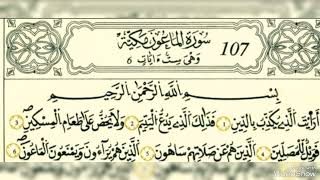 سُورَةُ الْمَاعُونَ مَكِّيَّة 107
وَهْيَ سِتُّ ءَايَاتٍ 6
بِسْمِ اللَّهِ الرَّحْمَٰنِ الرَّحِيمِ
أَرَٰيْتَ الَّذِي يُكَذِّبُ بِالدِّينِ 1 فَذَٰلِكَ الَّذِي يَدُعُّ الْيَتِيمَ 2 وَلَا يَحُضُّ عَلَىٰ طَعَامِ الْمِسْكِينِ 3
فَوَيْلٌ لِّلْمُصَلِّينَ 4 الَّذِينَ هُمْ عَن صَلَاتِهِمْ سَاهُونَ 5 الَّذِينَ هُمْ يُرَآءُونَ وَيَمْنَعُونَ الْمَاعُونَ 6